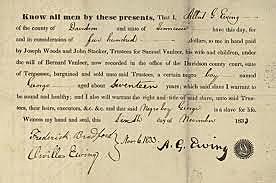 Know all men by these presents, That I, Albert G Ewing
of the county of Davidson and state of Tennessee have this day, for
and in consideration of five hundred dollars, to me in hand paid
by Joseph Woods and John Stacker, Trustees for Samuel Vanleer, his wife and children, under
the will of Bernard Vanleer, recorded in the office of the Davidson county court, state
of Tennessee, bargained and sold unto said Trustees, a certain negro boy named
George aged about Seventeen years, which said slave I warrant to
be sound and healthy; and I also will warrant the right and title of said slave, unto said Trus-
tees, their heirs, executors, &c. &c. and that said Negro boy George is a slave for life.
Witness my hand and seal, this day of November 1833
Frederick Bradford Nov 6 1833
Orville Ewing A. G. Ewing